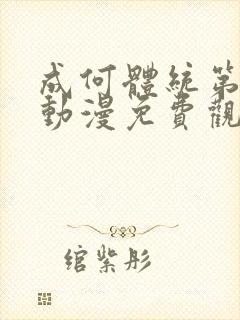 成何體統第
動漫免費觀
綰紫彤